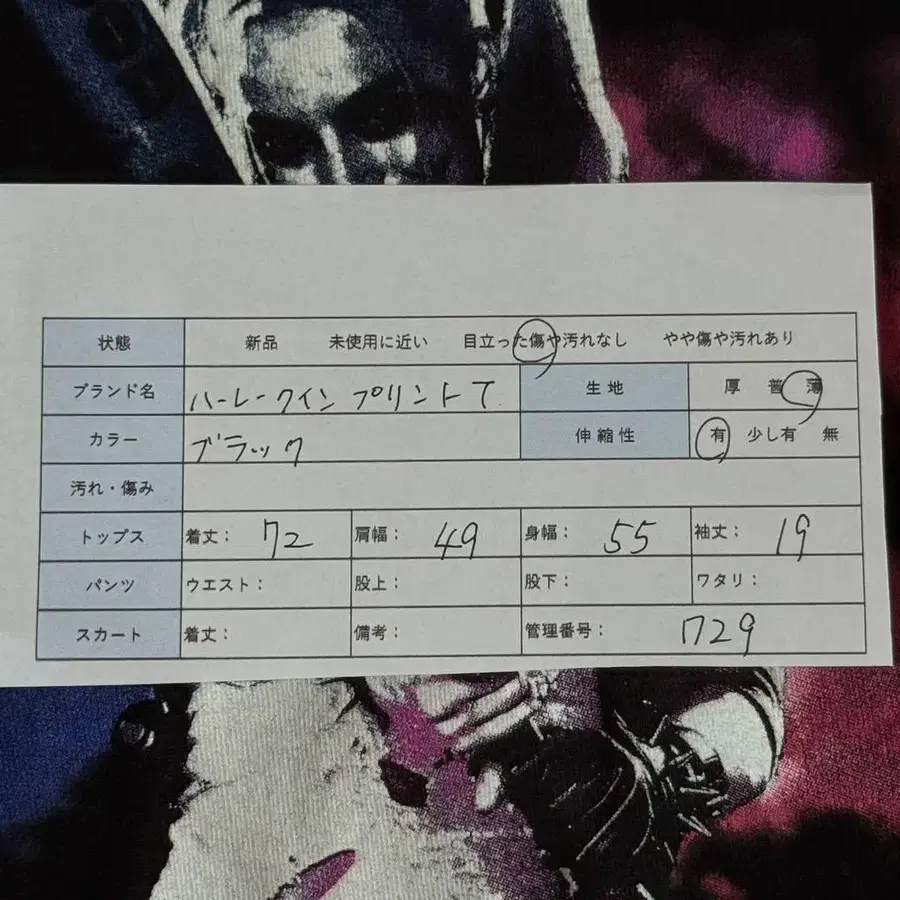 状態 新品 未使用に近い 目立った傷や汚れなし やや傷や汚れあり
ブランド名 ハーレークイン プリントT 生地 厚 普 薄
カラー ブラック 伸縮性 有 少し有 無
汚れ・傷み
トップス 着丈： 72 肩幅： 49 身幅： 55 袖丈： 19
パンツ ウエスト： 股上： 股下： ワタリ：
スカート 着丈： 備考： 管理番号： 1729